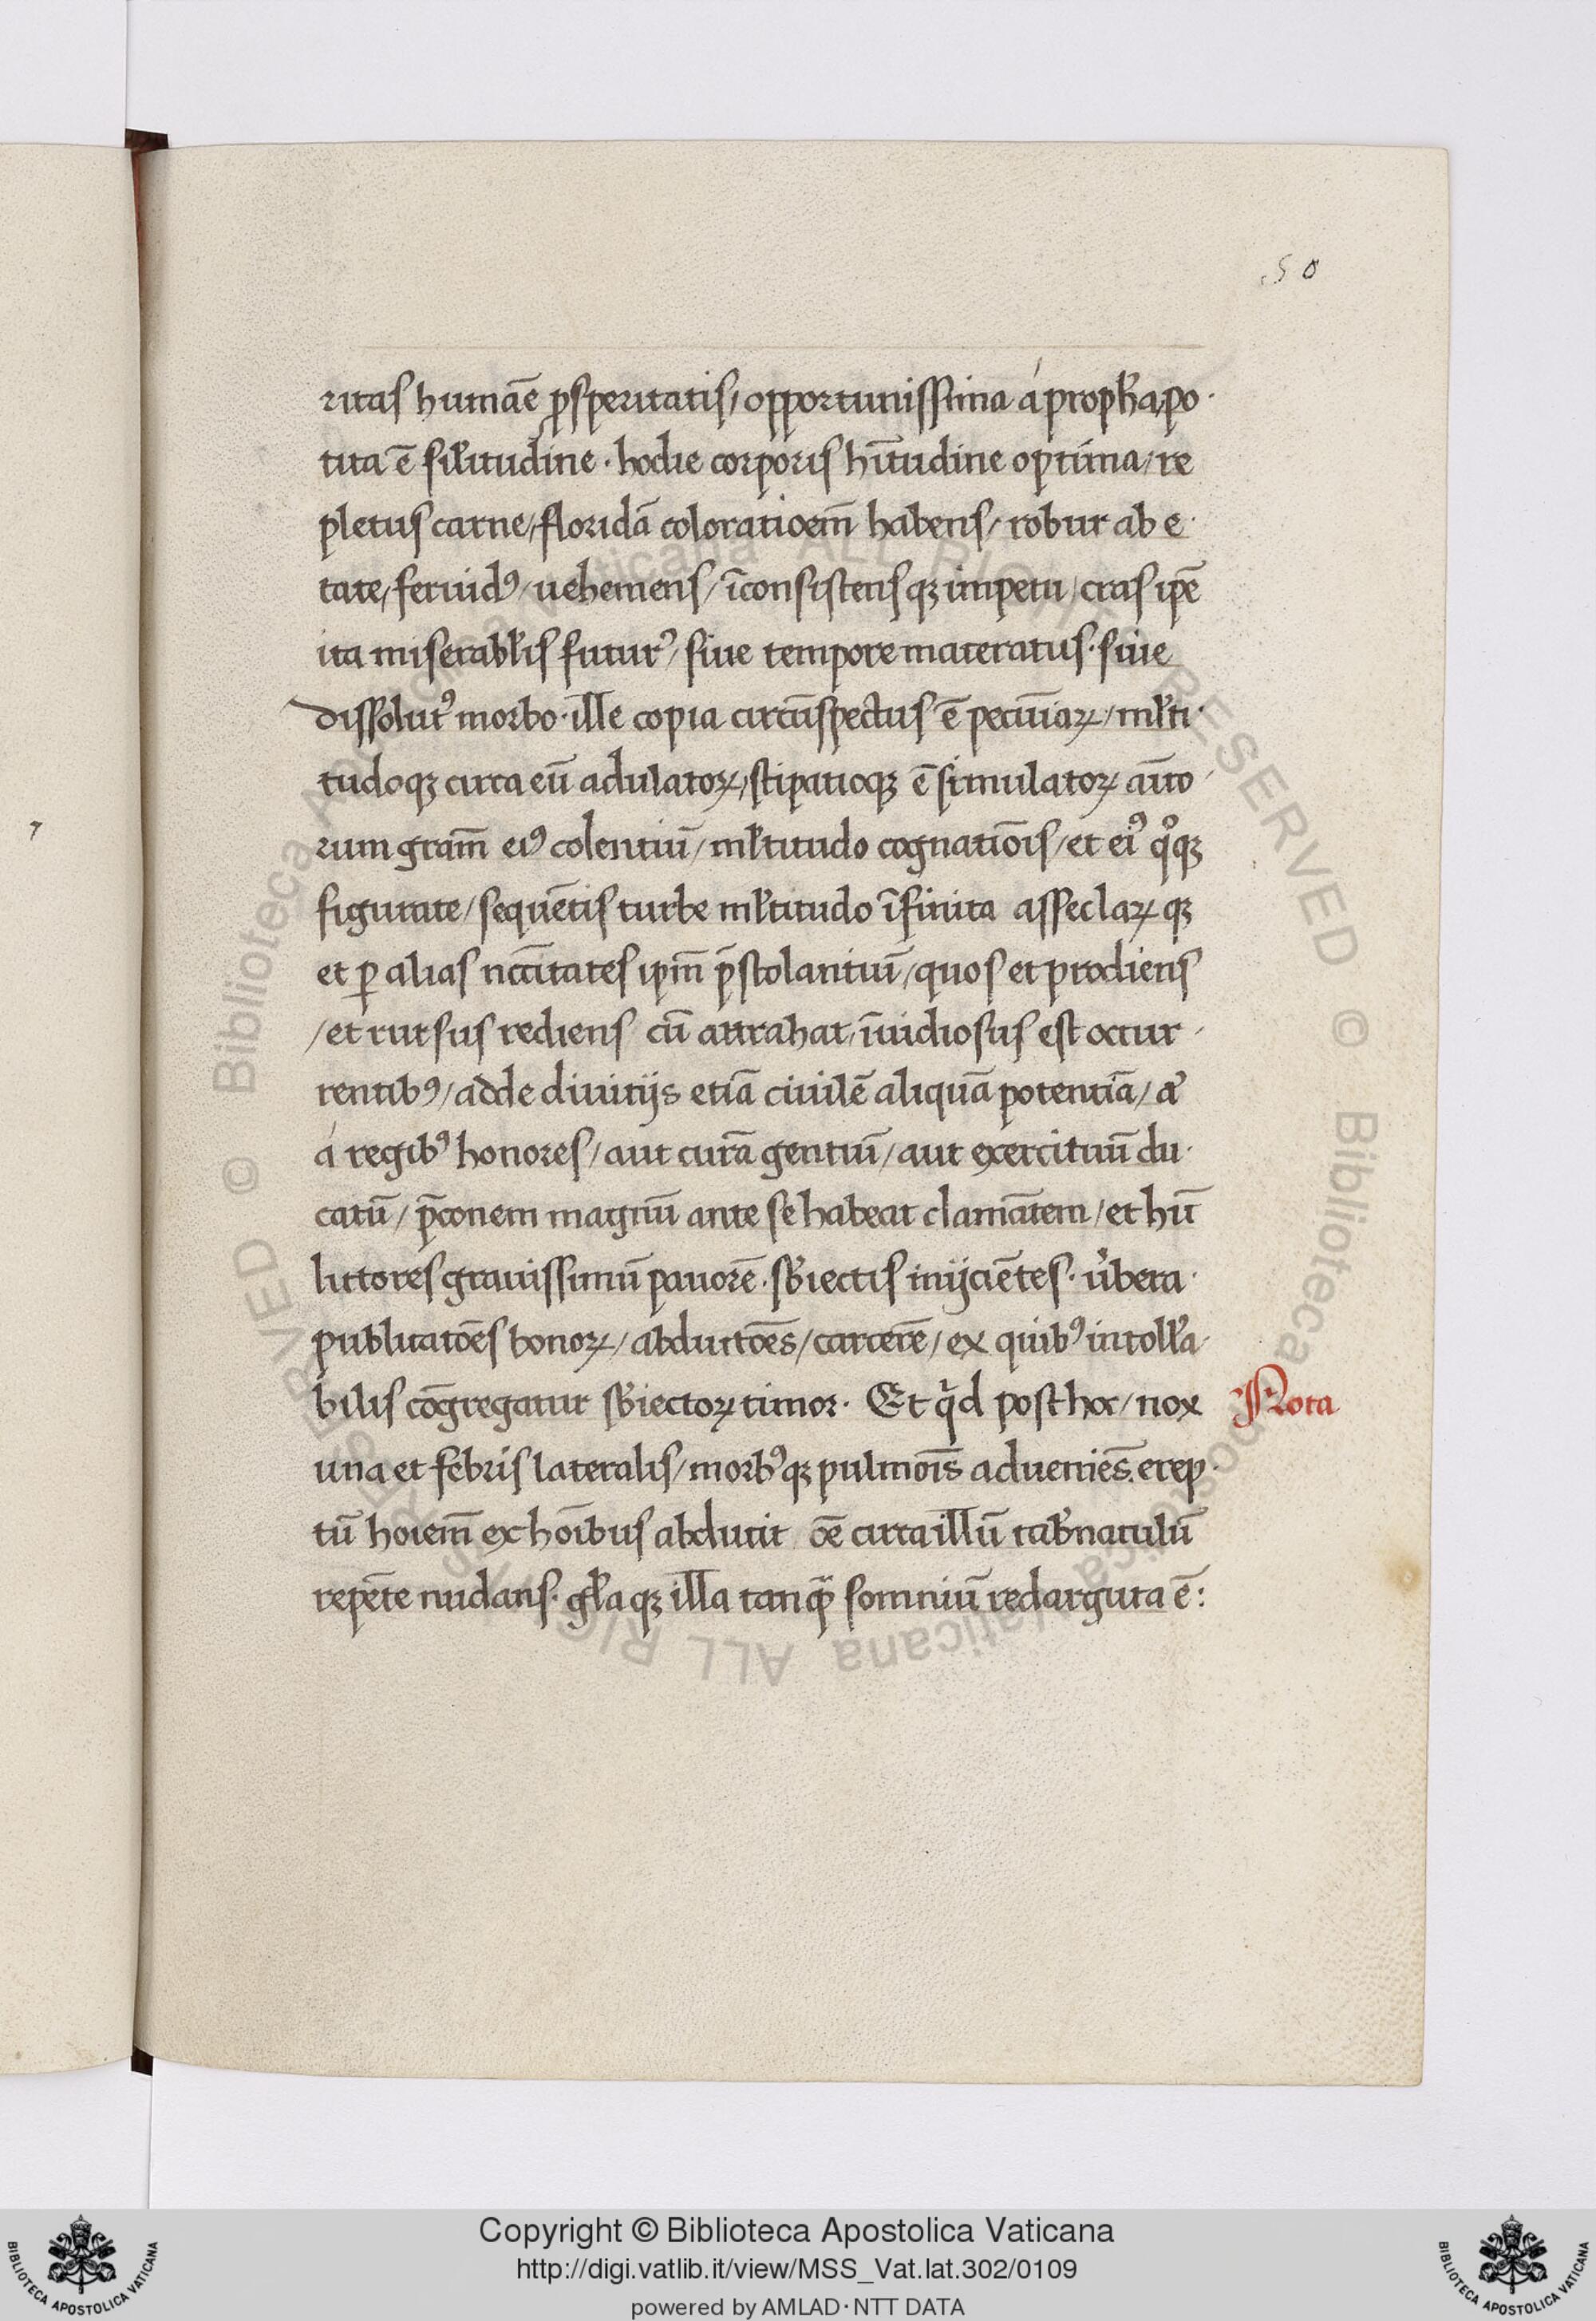 50
ritas humãe ꝓsperitatis/ opportunissima á propħa, po·
tita ẽ sil̃itudine · hodie corporis hr̃tudine optima/ re
pletus carne/ floridã coloratioem̃ habens/ robur ab e·
tate/ feruidꝰ/ uehemens/ ĩconsistensqꝫ impetu/ cras ip̃e
ita miserabl̃is futurꝰ/ siue tempore maceratus· siue
dissolutꝰ morbo· ille copia circũspectus ẽ pecuĩaꝝ/ ml̃ti·
tudoqꝫ circa eũ adulatoꝝ/ stipatioqꝫ ẽ simulatoꝝ
rum gram̃ eiꝰ colentiũ/ ml̃titudo cognatiõis/ et eiꝰ qͦqꝫ
figurate/ sequẽtis turbe ml̃titudo ĩfinita asseclaꝝqꝫ
et ꝑ alias nccĩtates ipm̃ p̃stolantiũ/ quos et prodiens
/et rursus rediens cũ attrahat/ ĩuidiosus est occur·
rentibꝰ/ adde diuitijs etiã ciuilẽ aliquã potentiã/ a'
á regibꝰ honores/ aut curã gentiũ/ aut exercituũ du·
catũ/ p̃conem magnũ ante se habeat clamãtem/ et hĩc
lictores grauissimũ pauorẽ· sb̓iectis inijciẽtes· u̓bera·
publicatões bonoꝝ/ abductões/ carcerẽ/ ex quibꝰ intoll̃a·
bilis cõgregatur sb̓iectoꝝ timor· Et qͥd post hoc/ nox
Nota
una et febris lateralis/ morbꝰqꝫ pulmoĩs adueniẽs. erep·
tũ hoiem̃ ex hoĩbus abducit oẽ circa illũ tab̓naculũ
repẽte nudans· gl̃aqꝫ illa tanqᷓ somniũ redarguta ẽ:
Copyright © Biblioteca Apostolica Vaticana
http://digi.vatlib.it/view/MSS_Vat.lat.302/0109
powered by AMLAD · NTT DATA